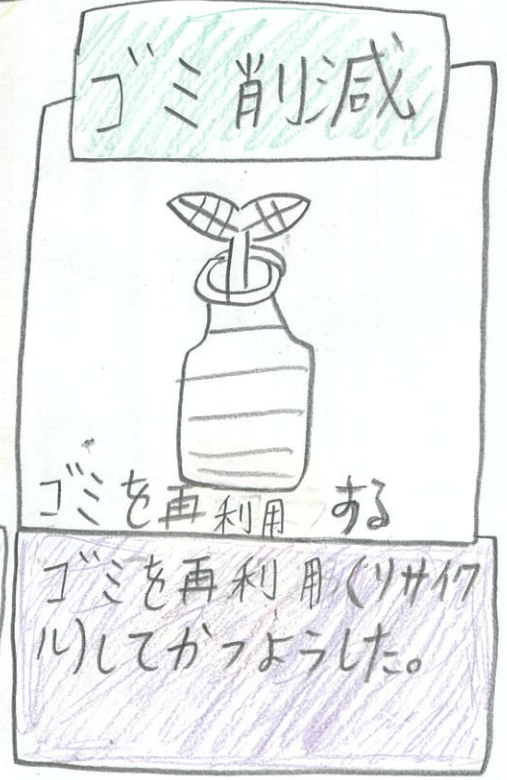 ゴミ削減
ゴミを再利用する
ゴミを再利用(リサイク
ル)してかつようした。